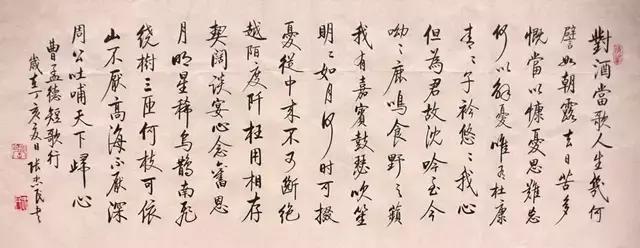 對酒當歌人生幾何
譬如朝露去日苦多
慨當以慷憂思難忘
何以解憂唯有杜康
青〻子衿悠〻我心
但為君故沈吟至今
呦〻鹿鳴食野之蘋
我有嘉賓鼓瑟吹笙
明〻如月何时可掇
憂從中来不可斷絕
越陌度阡枉用相存
契闊談宴心念舊恩
月明星稀烏鵲南飛
繞樹三匝何枝可依
山不厭高海不厭深
周公吐哺天下歸心
曹孟德短歌行
歲在丁亥夏日張